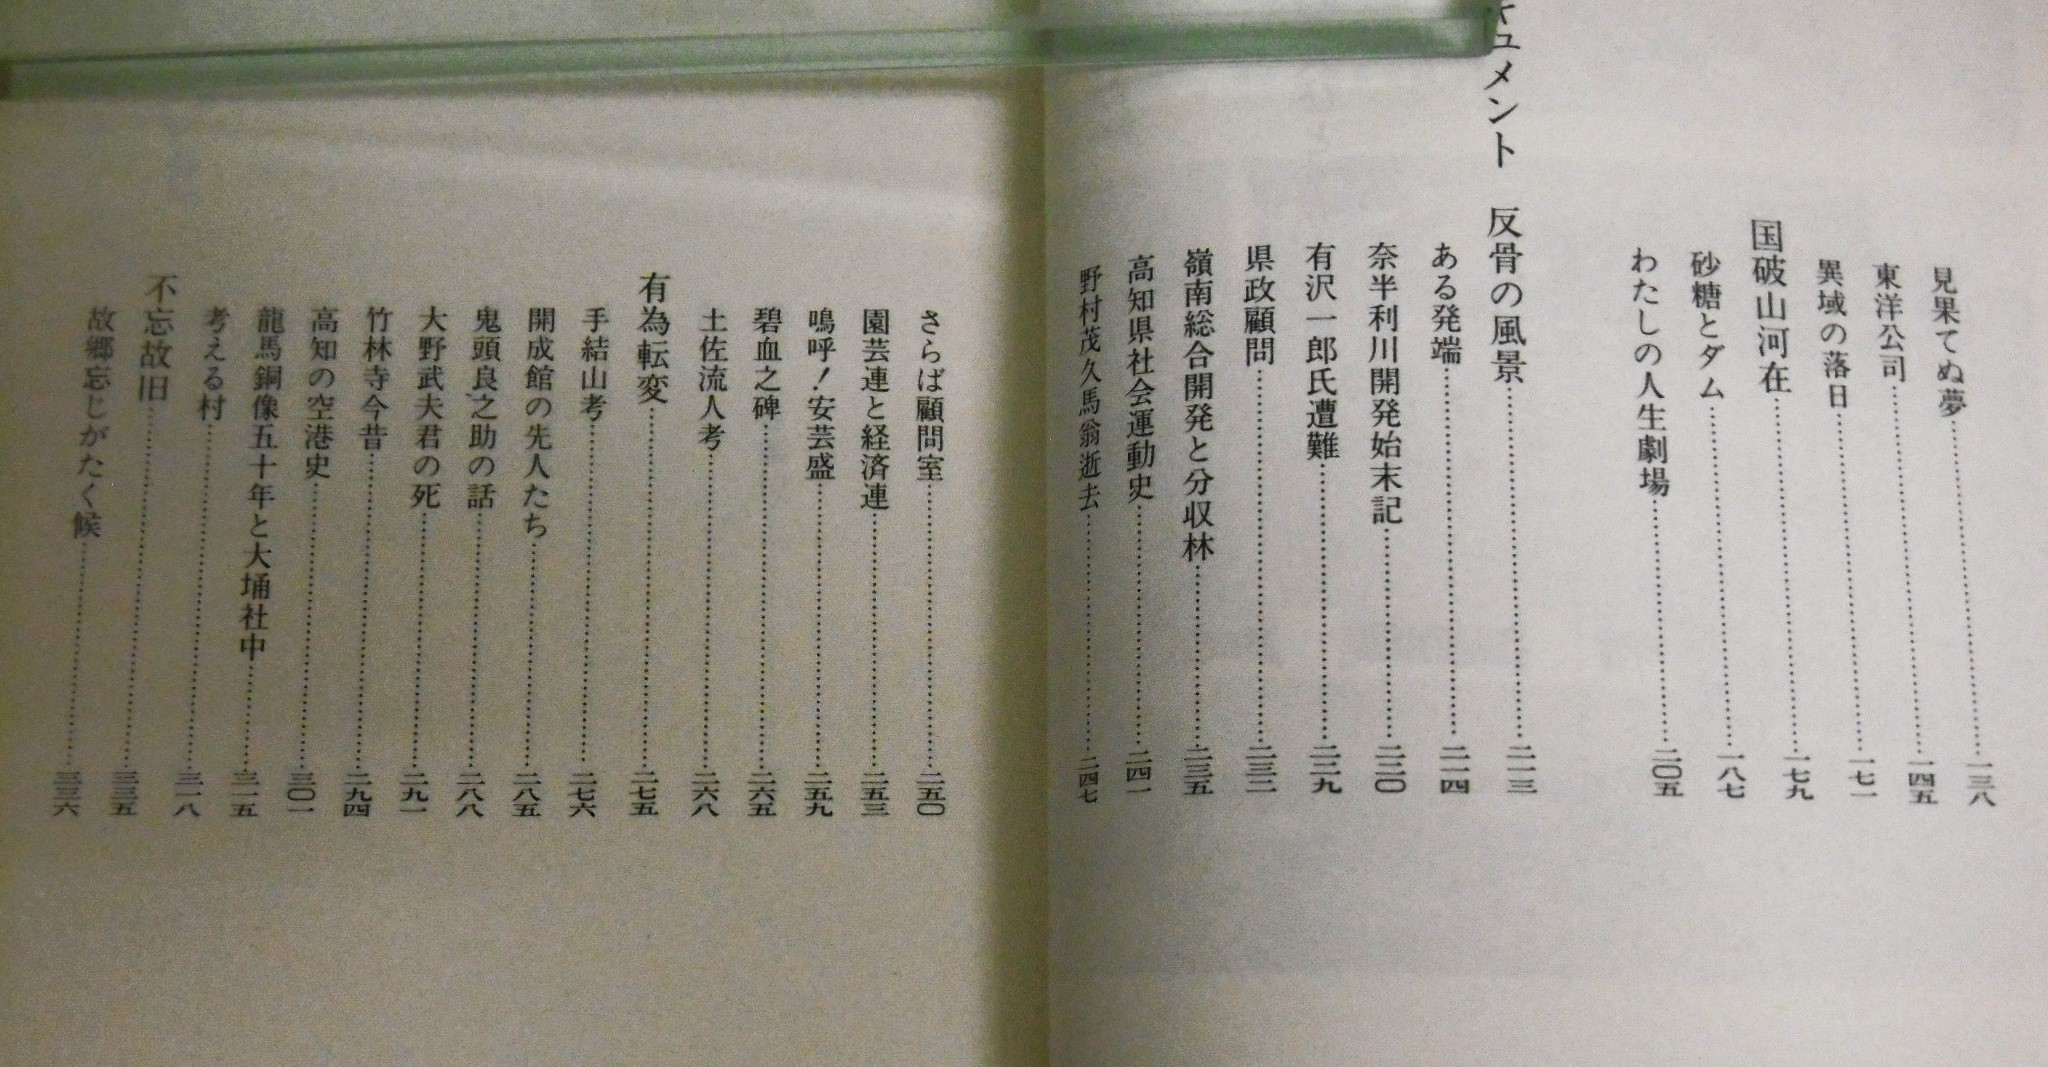 見果てぬ夢……一三八
東洋公司……一四五
異域の落日……一七一
国破山河在……一七九
砂糖とダム……一八七
わたしの人生劇場……二〇五
キュメント 反骨の風景……二一三
ある発端……二一四
奈半利川開発始末記……二二〇
有沢一郎氏遭難……二二九
県政顧問……二三二
嶺南総合開発と分収林……二三五
高知県社会運動史……二四一
野村茂久馬翁逝去……二四七
さらば顧問室……二五〇
園芸連と経済連……二五三
鳴呼!安芸盛……二五九
碧血之碑……二六五
土佐流人考……二六八
有為転変……二七五
手結山考……二七六
開成館の先人たち……二八五
鬼頭良之助の話……二八八
大野武夫君の死……二九一
竹林寺今昔……二九四
高知の空港史……三〇一
龍馬銅像五十年と大埇社中……三一五
考える村……三一八
不忘故旧……三三五
故郷忘じがたく候……三三六